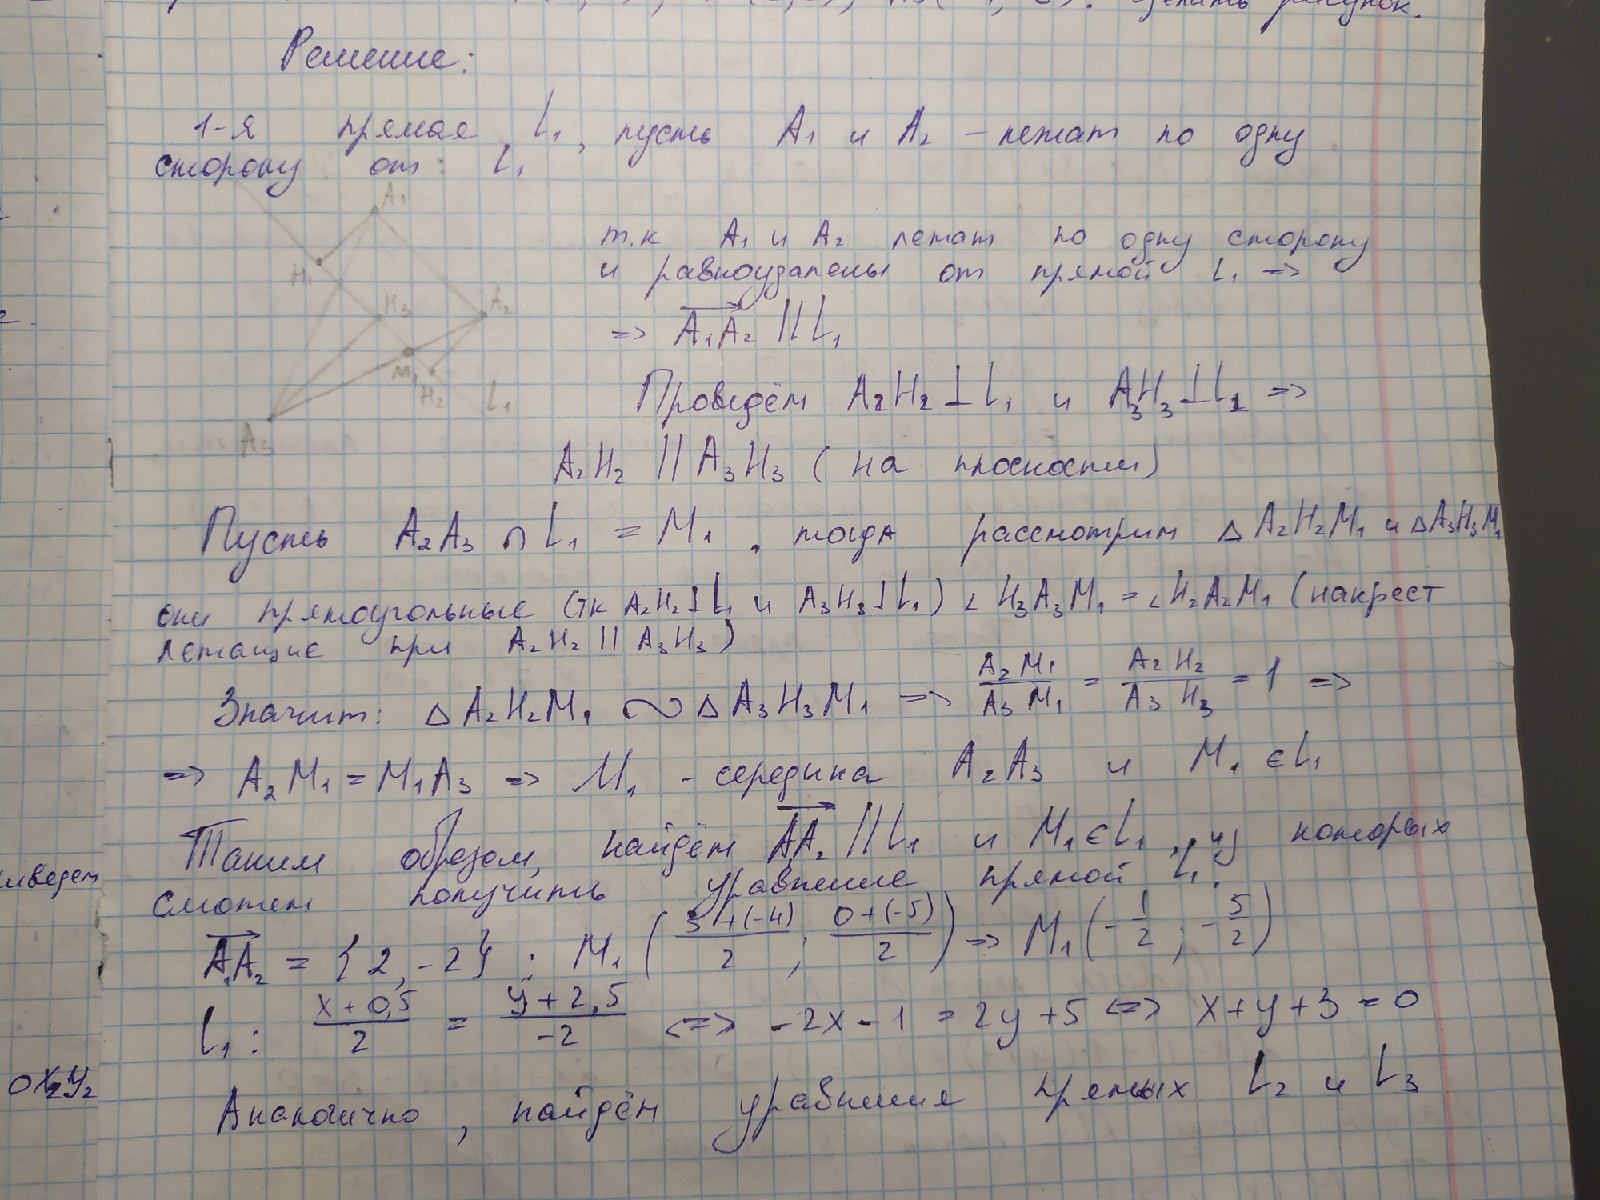 сделать рисунок.
Решение:
1-я прямая L₁, пусть A₁ и A₂ - лежат по одну
сторону от: L₁
A₁
H₁
H₃
A₂
M₁
H₂
L₁
A₃
т.к A₁ и A₂ лежат по одну сторону
и равноудалены от прямой L₁ =>
=> A₁A₂ || L₁
Проведём A₂H₂ ⊥ L₁ и A₃H₃ ⊥ L₁ =>
A₂H₂ || A₃H₃ (на плоскости)
Пусть A₂A₃ ∩ L₁ = M₁, тогда рассмотрим △ A₂H₂M₁ и △A₃H₃M₁
они прямоугольные (тк A₂H₂⊥L₁ и A₃H₃⊥L₁) ∠ H₃A₃M₁ = ∠H₂A₂M₁ (накрест
лежащие при A₂H₂ || A₃H₃)
Значит: △ A₂H₂M₁ ∾ △ A₃H₃M₁ => A₂M₁/A₃M₁ = A₂H₂/A₃H₃ = 1 =>
=> A₂M₁ = M₁A₃ => M₁ - середина A₂A₃ и M₁ ∈ L₁
Таким образом, найдём A₁A₂ || L₁ и M₁ ∈ L₁, из которых
сможем получить уравнение прямой L₁.
A₁A₂ = {2, -2} ; M₁ ((3+(-4))/2 ; (0+(-5))/2) => M₁ (-1/2 ; -5/2)
L₁: (x+0,5)/2 = (y+2,5)/-2 <=> -2x-1 = 2y+5 <=> x+y+3=0
Аналогично, найдём уравнения прямых L₂ и L₃
0X₂Y₂